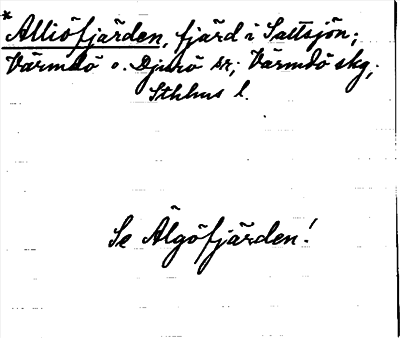 * Alliöfjärden, fjärd i Saltsjön;
Värmdö o. Djurö sn; Värmdö skg,
Sthlms l.
Se Älgöfjärden!